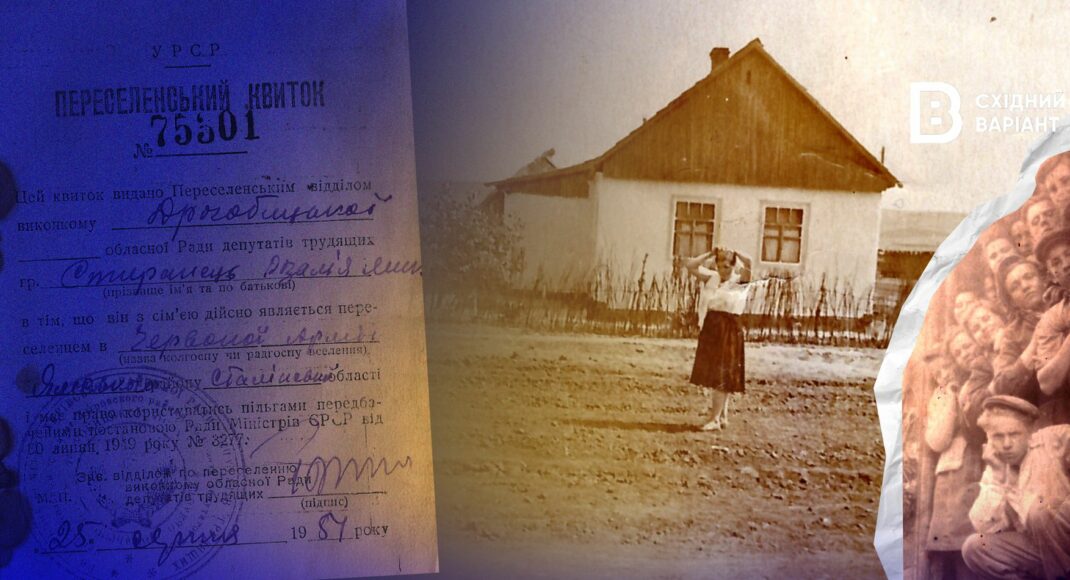 УРСР
ПЕРЕСЕЛЕНСЬКИЙ КВИТОК
№ 75501
Цей квиток видано Переселенським відділом
виконкому Дрогобицької
обласної Ради депутатів трудящих
гр.
(прізвище ім'я та по батькові)
в тім, що він з сім'єю дійсно являється пере-
селенцем в Червоної Армії
(назва колгоспу чи радгоспу вселення)
району Сталінської області
і має право користуватись пільгами передба-
ченими постановою Ради Міністрів СРСР від
1949 року № 3277.
Зав. відділом по переселенню
виконкому обласної Ради
депутатів трудящих
(підпис)
М. П.
25 серпня 1951 року
СХІДНИЙ
ВАРІАНТ